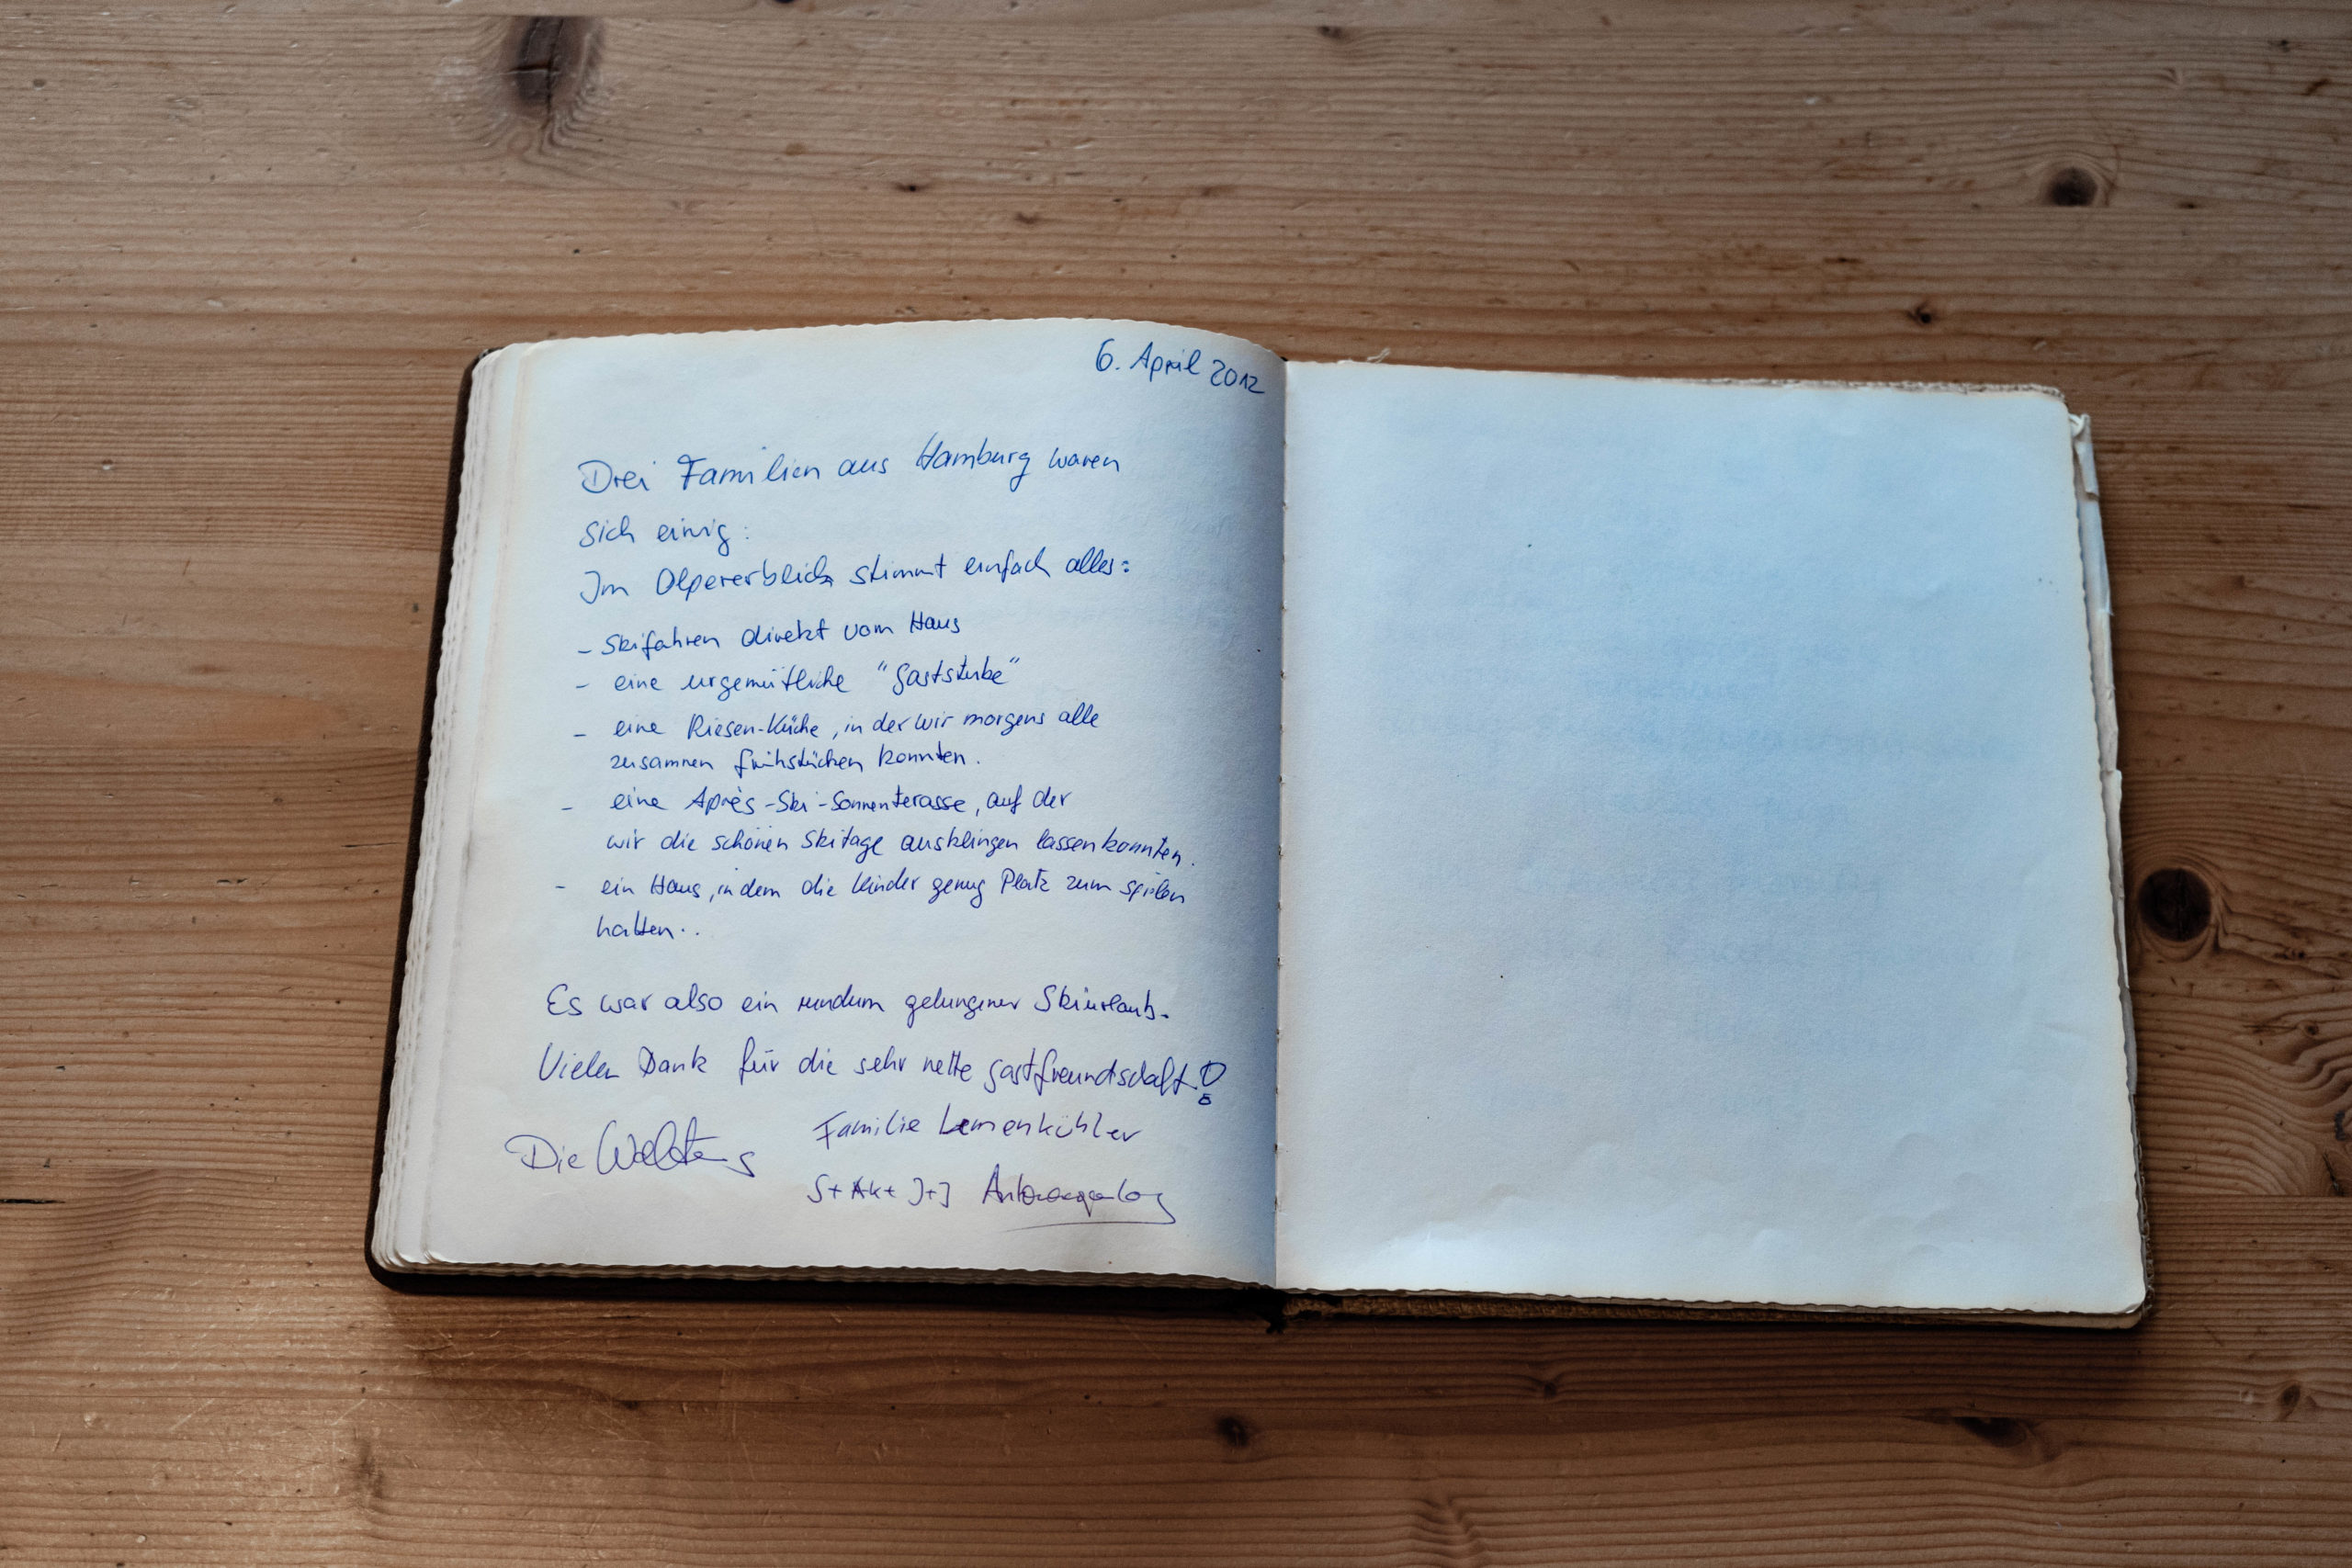 6. April 2012
Drei Familien aus Hamburg waren
sich einig:
Im Olpererblick stimmt einfach alles:
- Skifahren direkt vom Haus
- eine urgemütliche "Gaststube"
- eine Riesen-Küche, in der wir morgens alle
zusammen frühstücken konnten.
- eine Après-Ski-Sonnenterasse, auf der
wir die schönen Skitage ausklingen lassen konnten.
- ein Haus, in dem die Kinder genug Platz zum spielen
hatten..
Es war also ein rundum gelungener Skiurlaub.
Vielen Dank für die sehr nette Gastfreundschaft!
Die
Familie
S+AK+J+J